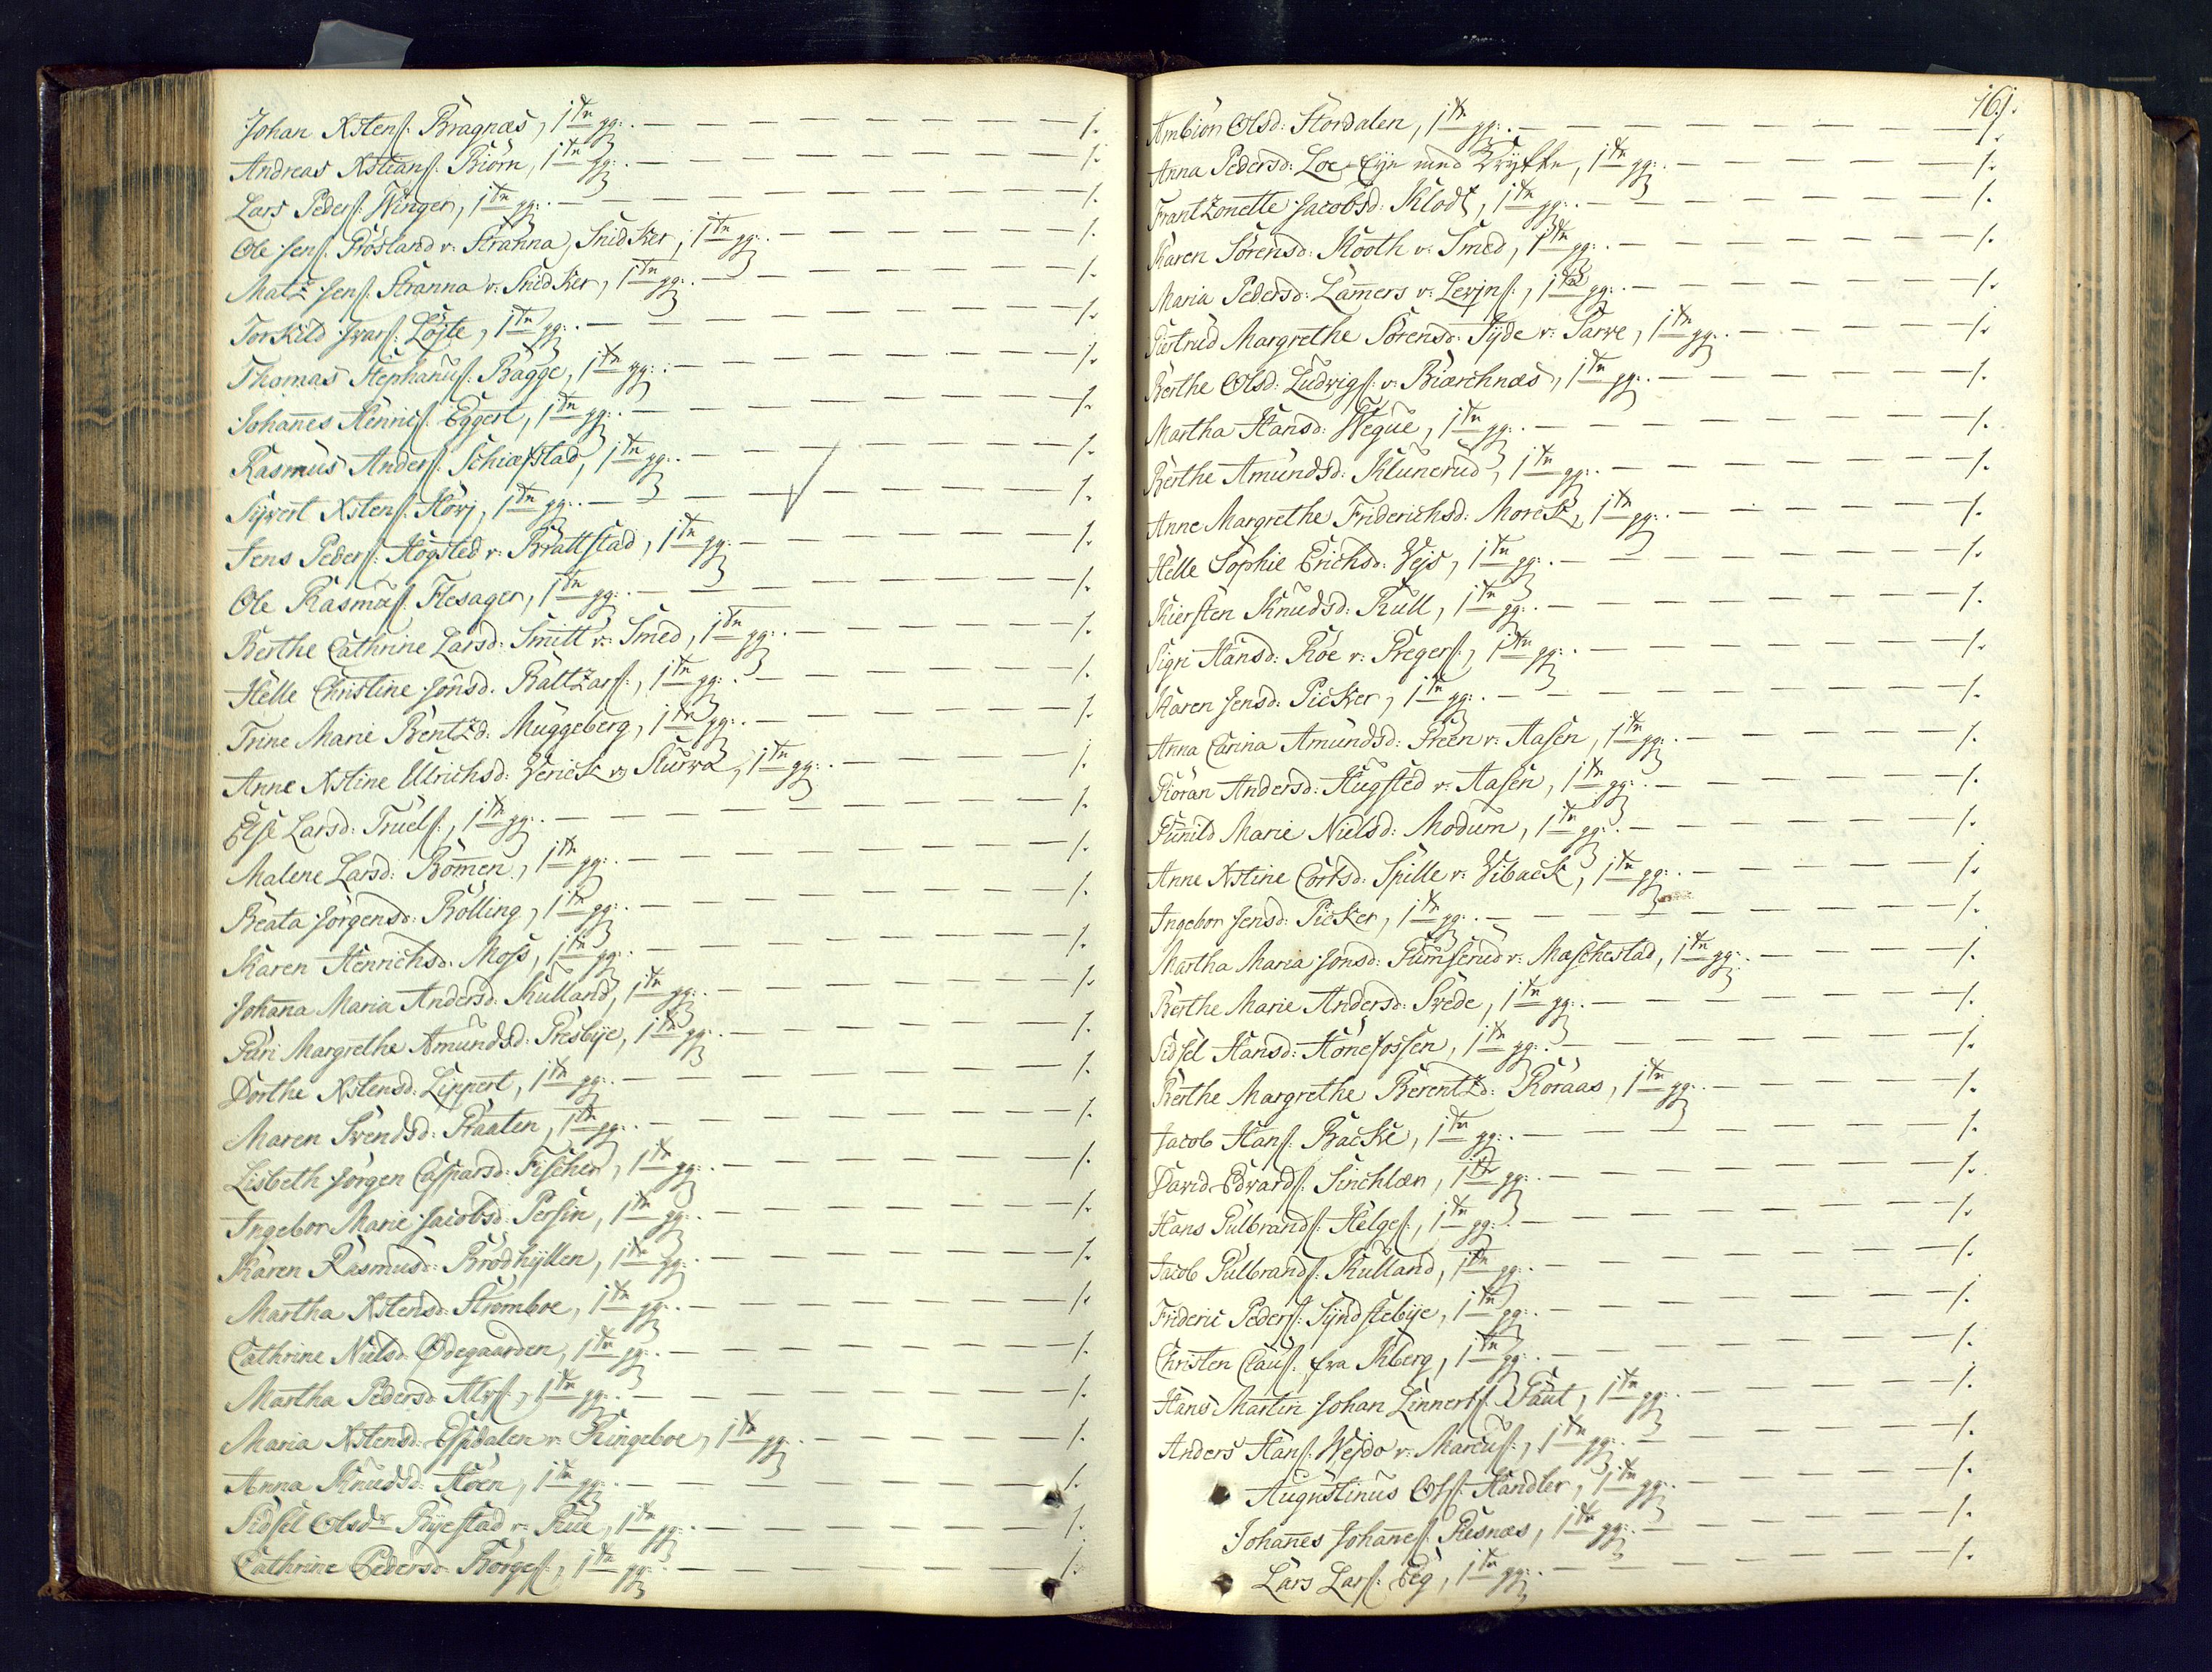 Johan Xstens: Bragnæs, 1te gg: — 1.
Andreas Xstians: Biörn, 1te gg: — 1.
Lars Peders: Winger, 1te gg: — 1.
Ole Jens: Frösland v: Stranna, Snidker, 1te gg: — 1.
Matz Jens: Stranna v: Snidker, 1te gg: — 1.
Torkild Ivars: Löjte, 1te gg: — 1.
Thomas Stephanus: Bagge, 1te gg: — 1.
Johannes Henrics: Eggert, 1te gg: — 1.
Rasmus Anders: Schiæfstad, 1te gg: — 1.
Syvert Xstens: Hövj, 1te gg: — 1.
Jens Peders: Hogsted v: Brattstad, 1te gg: — 1.
Ole Rasmus: Flesager, 1te gg: — 1.
Berthe Cathrine Larsd: Smitt v: Smed, 1te gg: — 1.
Helle Christine Jonsd. Baltzars:, 1te gg: — 1.
Trine Marie Bentzd: Muggeberg, 1te gg: — 1.
Anne Xstine Ulrichsd: Yerick v: Sturva, 1te gg: — 1.
Else Larsd: Truels:, 1te gg: — 1.
Malene Larsd: Bommen, 1te gg: — 1.
Beata Jörgensd: Bölling, 1te gg: — 1.
Karen Henrichsd. Moss, 1te gg: — 1.
Johanna Maria Andersd: Kulland, 1te gg: — 1.
Gari Margrethe Amundsd: Presbÿe, 1te gg: — 1.
Dorthe Xstensd: Lippert, 1te gg: — 1.
Maren Svendsd: Braaten, 1te gg: — 1.
Lisbeth Jörgen Caspersd: Fischer, 1te gg: — 1.
Ingebor Marie Jacobsd: Persin, 1te gg: — 1.
Karen Rasmusd: Brodhÿllen, 1te gg: — 1.
Martha Xstensd: Stromboe, 1te gg: — 1.
Cathrine Nielsd: Ödegaarden, 1te gg: — 1.
Martha Pedersd: Alvs:, 1te gg: — 1.
Maria Xstensd: Espdalen v: Ringeboe, 1te gg: — 1.
Anna Knudsd: Hoen, 1te gg: — 1.
Sidsel Olsdr Bÿestad v: Rue, 1te gg: — 1.
Cathrine Pedersd: Börges:, 1te gg: — 1.
161.
Ambiör Olsd: Stordalen, 1te gg: — 1.
Anna Pedersd: Loe-Eÿe med Krÿkke, 1te gg: — 1.
Frantzonette Jacobsd: Klodt, 1te gg: — 1.
Karen Sörensd: Kooth v: Smed, 1te gg: — 1.
Maria Pedersd: Lammers v: Levjns:, 1te gg: — 1.
Giertrud Margrethe Sörensd: Syde v: Sarve, 1te gg: — 1.
Berthe Olsd: Ludvigs: v: Biærchnæs, 1te gg: — 1.
Martha Hansd: Wegue, 1te gg: — 1.
Berthe Amundsd: Klunerud, 1te gg: — 1.
Anne Margrethe Friderichsd: Morck, 1te gg: — 1.
Helle Sophie Erichsd: Vejs, 1te gg: — 1.
Kiersten Knudsd: Kull, 1te gg: — 1.
Sigri Hansd: Röe v: Gregers:, 1te gg: — 1.
Karen Jensd: Picker, 1te gg: — 1.
Anna Carina Amundsd: Steen v: Aasen, 1te gg: — 1.
Giöran Andersd: Hugsted v: Aasen, 1te gg: — 1.
Gunild Marie Nielsd: Modum, 1te gg: — 1.
Anne Xstine Cortsd: Spille v: Viback, 1te gg: — 1.
Ingebor Jensd: Picker, 1te gg: — 1.
Martha Maria Jonsd: Gumserud v: Maschestad, 1te gg: — 1.
Berthe Marie Andersd: Svede, 1te gg: — 1.
Sidsel Hansd: Hönefossen, 1te gg: — 1.
Berthe Margrethe Berentzd: Röraas, 1te gg: — 1.
Jacob Hans: Backe, 1te gg: — 1.
David Edvards: Sinchlæn, 1te gg: — 1.
Hans Gulbrands: Helges:, 1te gg: — 1.
Jacob Gulbrands: Kulland, 1te gg: — 1.
Frideric Peders: Sÿndstebÿe, 1te gg: — 1.
Christen Claus: fra Kberg, 1te gg: — 1.
Hans Martin Johan Linnerts: Paut, 1te gg: — 1.
Anders Hans: Wejdo v: Marcus:, 1te gg: — 1.
Augustinus Ols: Handler, 1te gg: — 1.
Johannes Johannes: Resnæs, 1te gg: — 1.
Lars Lars: Eeg, 1te gg: — 1.